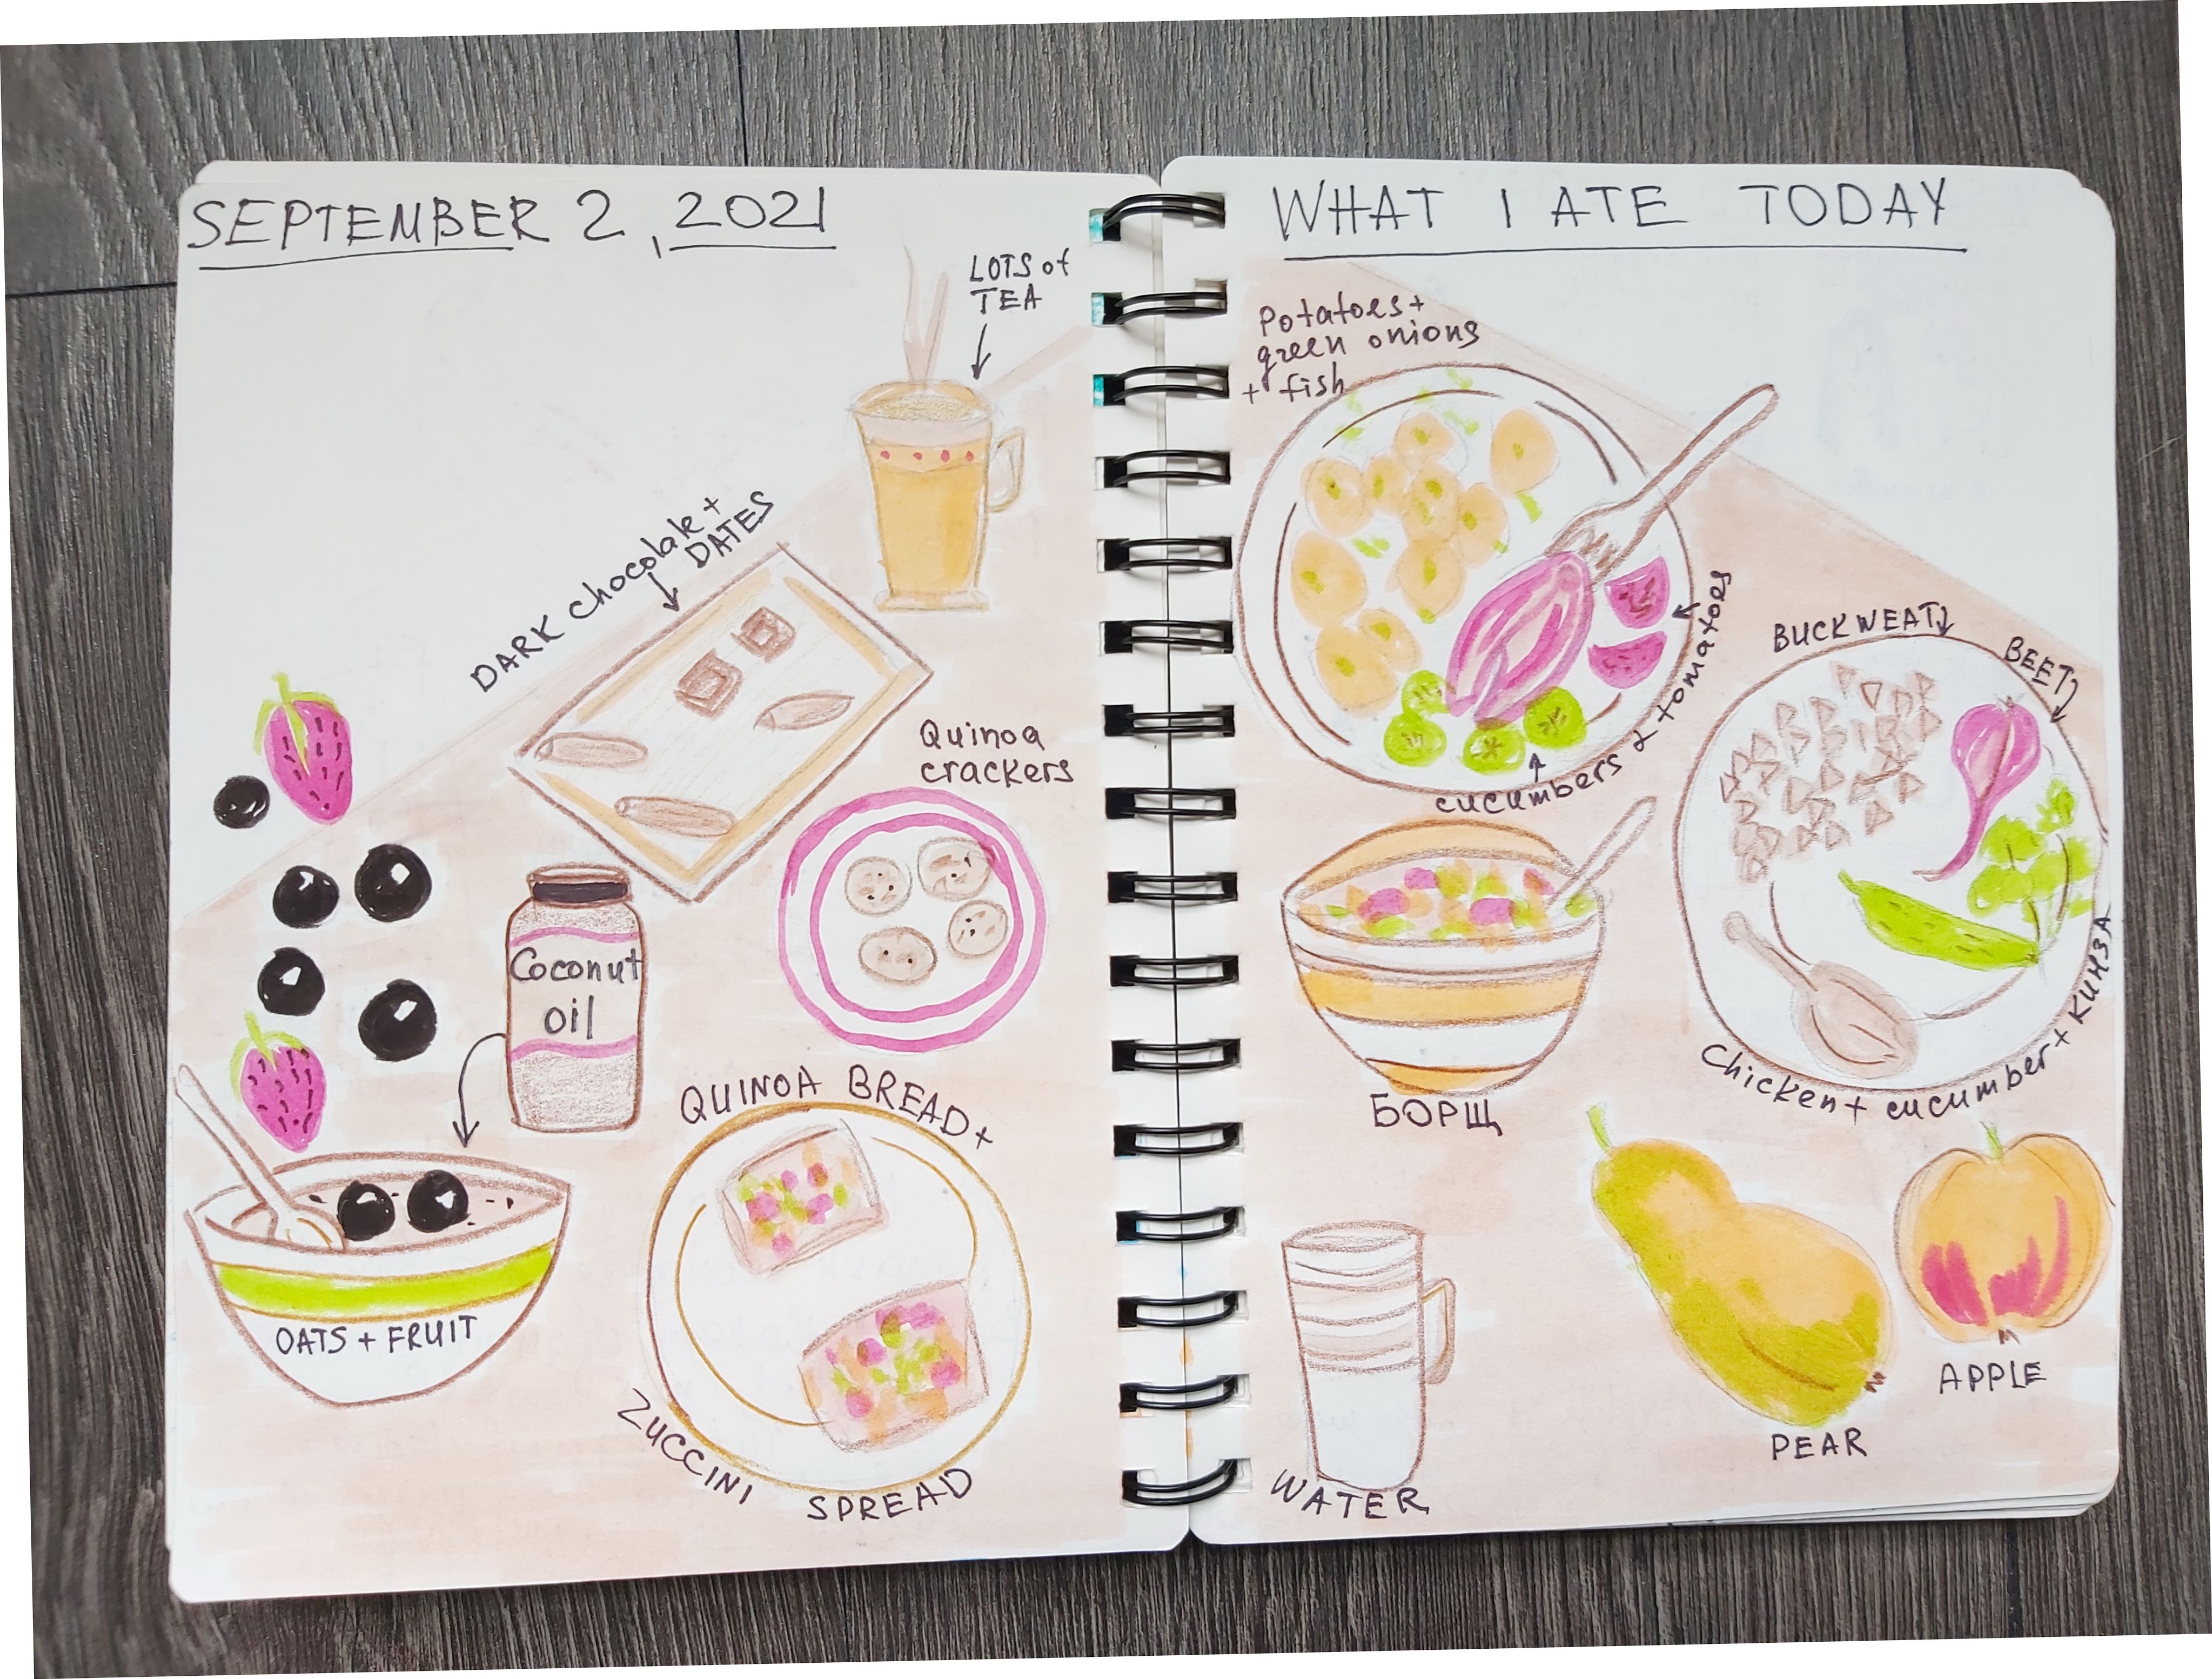 SEPTEMBER 2, 2021
LOTS of
TEA
DARK chocolate +
DATES
Quinoa
crackers
Coconut
oil
OATS + FRUIT
QUINOA BREAD +
ZUCCINI SPREAD
WHAT I ATE TODAY
Potatoes +
green onions
+ fish
cucumbers & tomatoes
BUCKWEAT
BEET
Chicken + cucumber + КИНЗА
БОРЩ
WATER
PEAR
APPLE